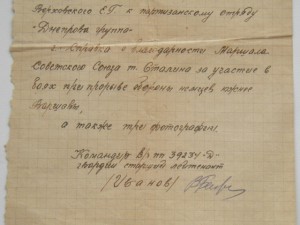 Верховского С.Г. к партизанскому отряду
"Днепрова группа"
и справка о благодарности Маршала
Советского Союза т. Сталина за участие в
боях при прорыве обороны немцев южнее
Варшавы,
а также три фотографии.
Командир В/ч пп 39234-Д
гвардии старший лейтенант
(Иванов)